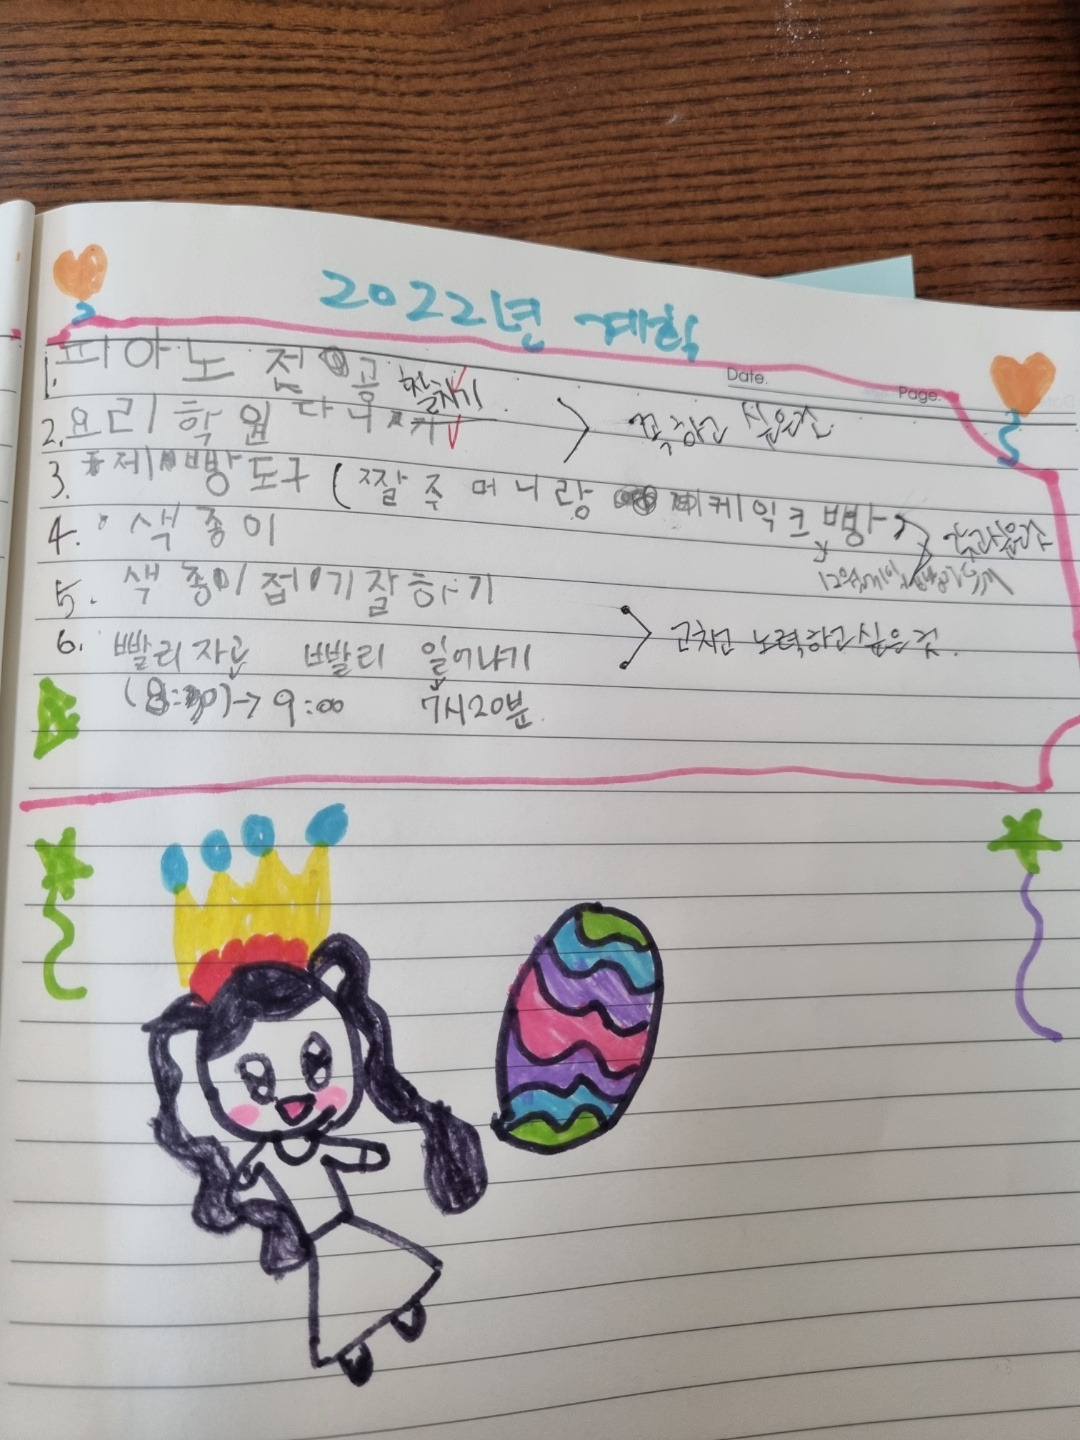 2022년 계획
Date.
Page.
1. 피아노 전공
2. 요리 학원 다니기
꼭하고 싶은것
3. 제빵도구 (짤주머니랑 케익크빵
4. 색종이
5. 색종이접기잘하기
6. 빨리자고 빨리 일어나기
고치고 노력하고싶은것.
→ 9:00 7시20분.